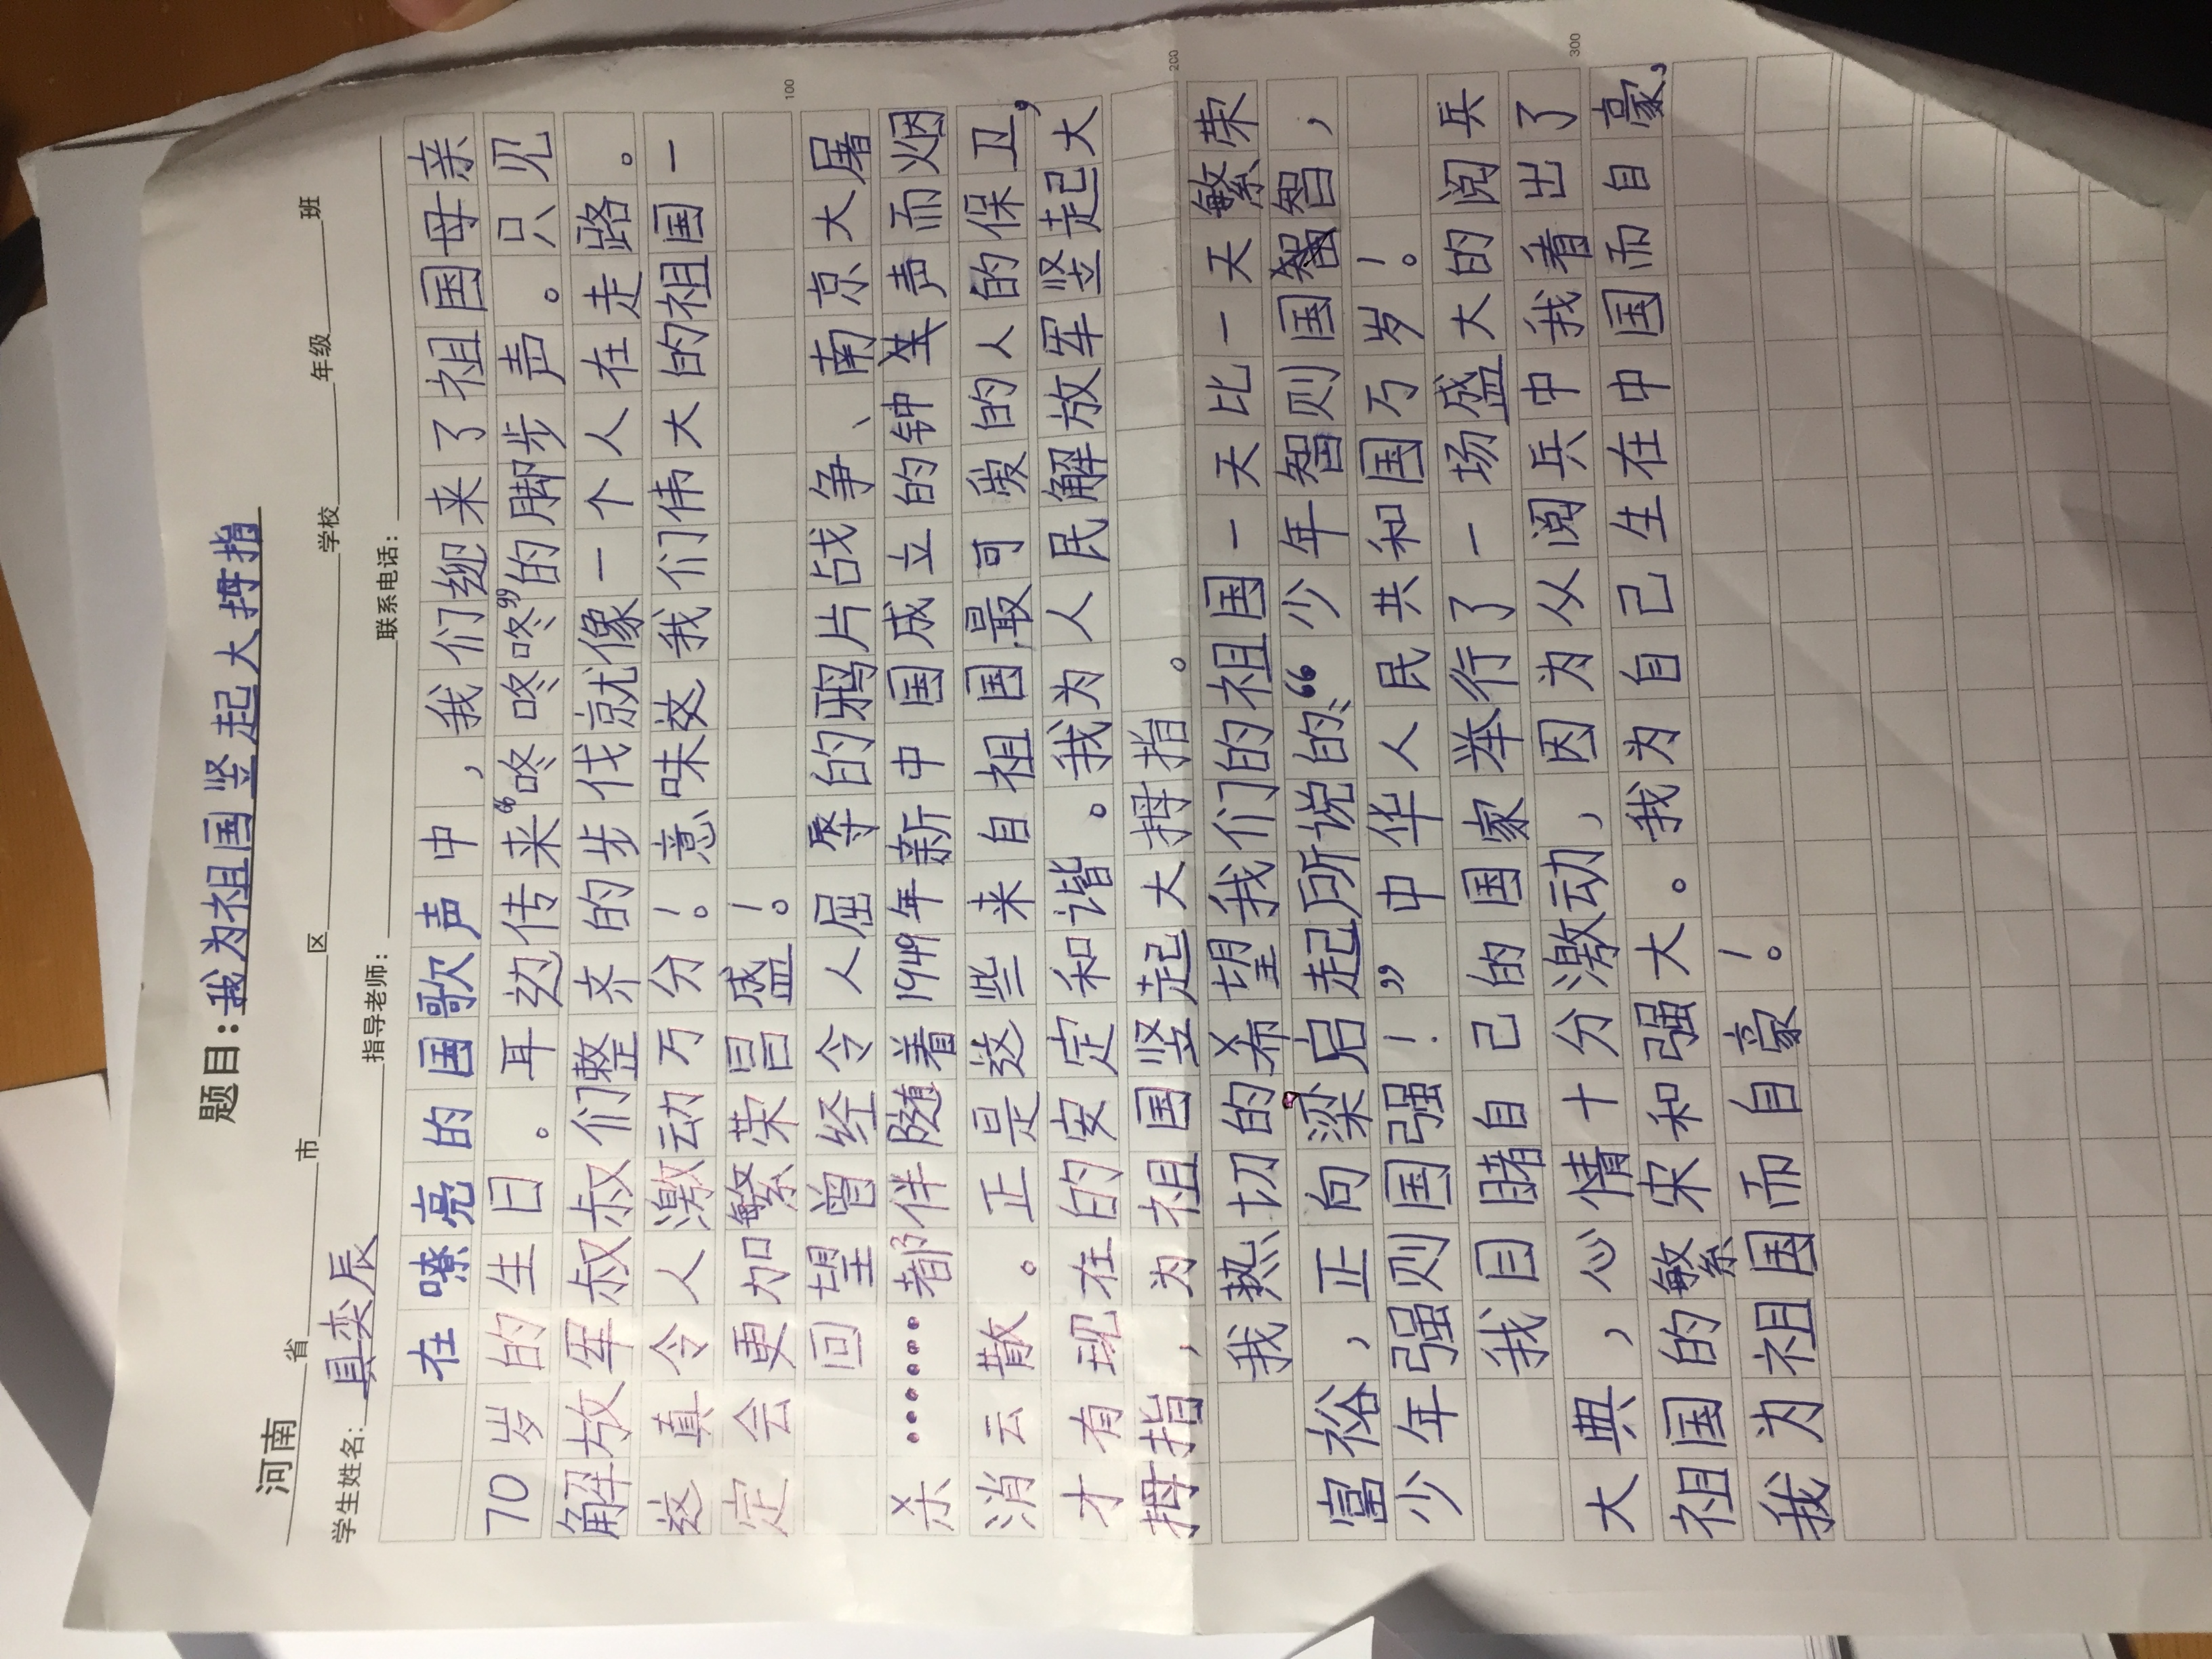 题目：我为祖国竖起大拇指
河南省 市 区 学校 年级 班
学生姓名：具奕辰 指导老师： 联系电话：
在嘹亮的国歌声中，我们迎来了祖国母亲
70岁的生日。耳边传来“咚咚咚”的脚步声。只见
解放军叔叔们整齐的步伐就像一个人在走路。
这真令人激动万分！意味这我们伟大的祖国一
定会更加繁荣昌盛！
100
回望曾经令人屈辱的鸦片战争、南京大屠
杀……都伴随着1949年新中国成立的钟声而烟
消云散。正是这些来自祖国最可爱的人的保卫，
才有现在的安定和谐。我为人民解放军竖起大
拇指，为祖国竖起大拇指。
200
我热切的希望我们的祖国一天比一天繁荣
富裕，正向梁启起所说的：“少年智则国智，
少年强则国强！”中华人民共和国万岁！
我目睹自己的国家举行了一场盛大的阅兵
大典，心情十分激动，因为从阅兵中我看出了
300
祖国的繁宋和强大。我为自己生在中国而自豪，
我为祖国而自豪！